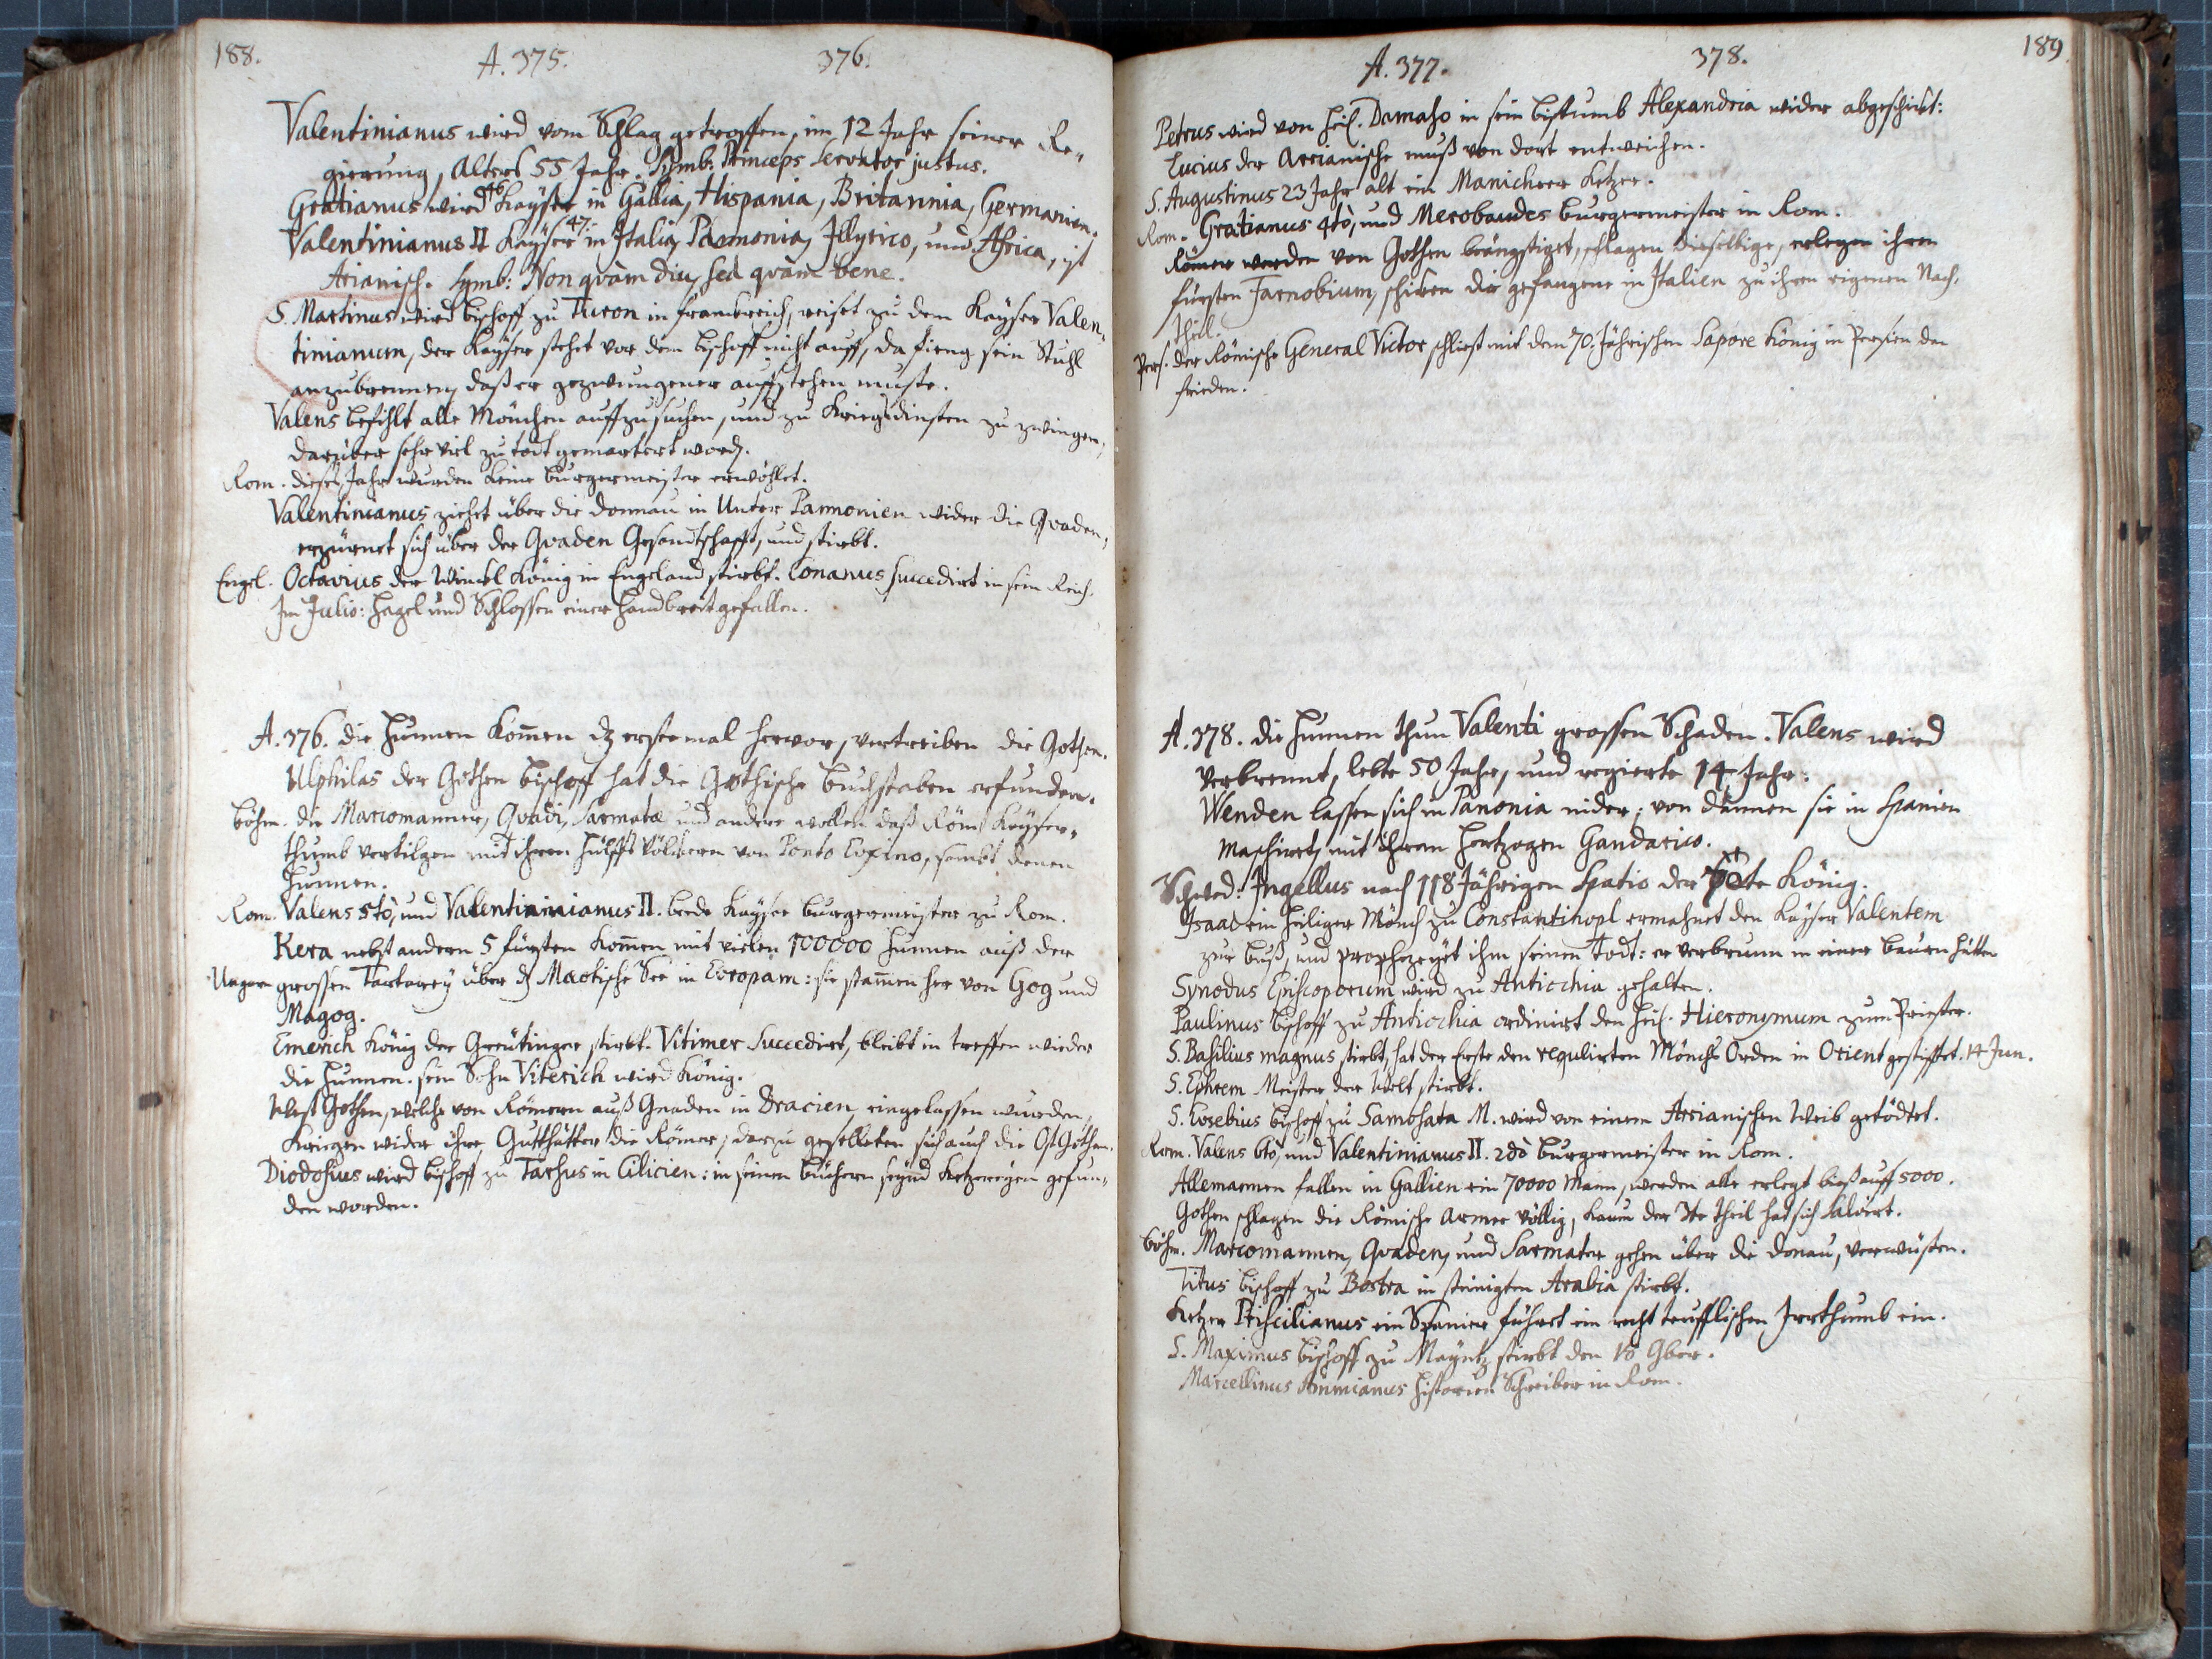 188.
A. 375.
376.
Valentinianus wird vom Schlag getroffen, im 12 Jahr seiner Re-
gierung, Alters 55 Jahr. Symb: Princeps servator justus.
Gratianus wird 46 Kayser in Gallia, Hispania, Britannia, Germanien.
Valentinianus II Kayser 47. in Italia, Pannonia, Illyrico, und Africa, ist
Arianisch. Symb: Non quàm diu, sed quàm bene.
S. Martinus wird Bischoff zu Turon in Franckreich, reiset zu dem Kayser Valen-
tinianum, der Kayser stehet vor dem Bischoff nicht auff, da fieng sein Stuhl
anzubrennen, daß er gezwungener auffstehen muste.
Valens befihlt alle Mönchen auffzusuchen, und zu Kriegsdinsten zu zwingen,
darüber sehr viel zu todt gemartert word.
Rom. dieses Jahr wurden keine Burgermeister erwöhlet.
Valentinianus ziehet über die Donnau in Unter Pannonien wider die Qvaden,
erzürnet sich über der Qvaden Gesandtschafft, und stirbt.
Engel. Octavius der König in Engeland stirbt. Conanus succedirt in sein Reich.
Im Julio: Hagel und Schlossen einer Handbreit gefallen.
A. 376. die Hunnen kom̄en dz erstemal hervor, vertreiben die Gothen.
Ulphilas der Gothen Bischoff hat die Gothische Buchstaben erfunden.
Böhm. die Marcomanner, Qvadi, Sarmatæ und andere wollen daß Röm Keyser-
thumb vertilgen mit ihren Hülffs Völckern von Ponto Euxino, sambt denen
Hunnen.
Rom. Valens 5tò, und Valentininianus II. beede Kayser Burgermeister zu Rom.
Kera nebst andern 5 Fürsten kom̄en mit vielen 100000 Hunnen auß der
Ungarn grossen Tartarey über d Maotische See in Europam: sie stam̄en her von Gog und
Magog.
Emerich König der Greutinger stirbt. Vitimer succedirt, bleibt in treffen wieder
die Hunnen. sein Sohn Viterich wird König.
West Gothen, welche von Römern auß Gnaden in Dracien eingelassen wurden,
kriegen wider ihre Gutthäter die Römer, darzu geselleten sich auch die Ost Gothen.
Diodosius wird Bischoff zu Tarsus in Cilicien: in seinen Büchern seynd Ketzereyen gefun-
den worden.
A. 377.
378.
189
Petrus wird von Heil. Damaso in sein Bistumb Alexandria wider abgeschickt:
Lucius der Arrianische muß von dort entweichen.
S. Augustinus 23 Jahr alt ein Manicheer Ketzer.
Rom. Gratianus 4tò, und Merobaudes Burgermeister in Rom.
Römer werden von Gothen beängstiget, schlagen dieselbige, erlegen ihren
Fürsten Farnobium, schicken die gefangene in Italien zu ihren eigenen Nach-
theil.
Pers. der Römische General Victor schliest mit dem 70. Jährischen Sapore König in Persien den
frieden.
A. 378. die Hunnen thun Valenti grossen Schaden. Valens wird
verbrennt, lebte 50 Jahr, und regierte 14 Jahr.
Wenden lassen sich in Panonia nider, von dannen sie in Spanien
maschiert, mit ihrem Hertzogen Gandarico.
Schwed. Ingellus nach 118 Jährigen Spatio der König.
Isaac ein Heiliger Mönch zu Constantinopl ermahnet den Kayser Valentem
zur Buß, und prophezeyet ihm seinen Todt: er verbrunn in einer Bauren hütten
Synodus Episcoporum wird zu Antiochia gehalten.
Paulinus Bischoff zu Antiochia ordinirt den Heil. Hieronymum zum Priester.
S. Basilius magnus stirbt, hat der Erste den regulirten Mönchs Orden in Orient gestifftet. 14 Jun.
S. Ephrem Meister der Welt stirbt.
S. Eusebius Bischoff zu Samosata M. wird von einem Arrianischen Weib getödtet.
Rom. Valens 6tò, und Valentinianus II. 2dò Burgermeister in Rom.
Allemannen fallen in Gallien ein 70000 Mann, werden alle erlegt biß auff 5000.
Gothen schlagen die Römische Armee völlig, kaum der 3te theil hat sich salvirt.
Böhm. Marcomannen, Qvaden, und Sarmater gehen über die Donau, verwüsten.
Titus Bischoff zu Bostra in steinigten Arabia stirbt.
Ketzer Priscilianus ein Spanier führet ein recht teufflischen Irrthumb ein.
S. Maximus Bischoff zu Mayntz stirbt den 18 9ber.
Marcellinus Ammianus Historien Schreiber in Rom.